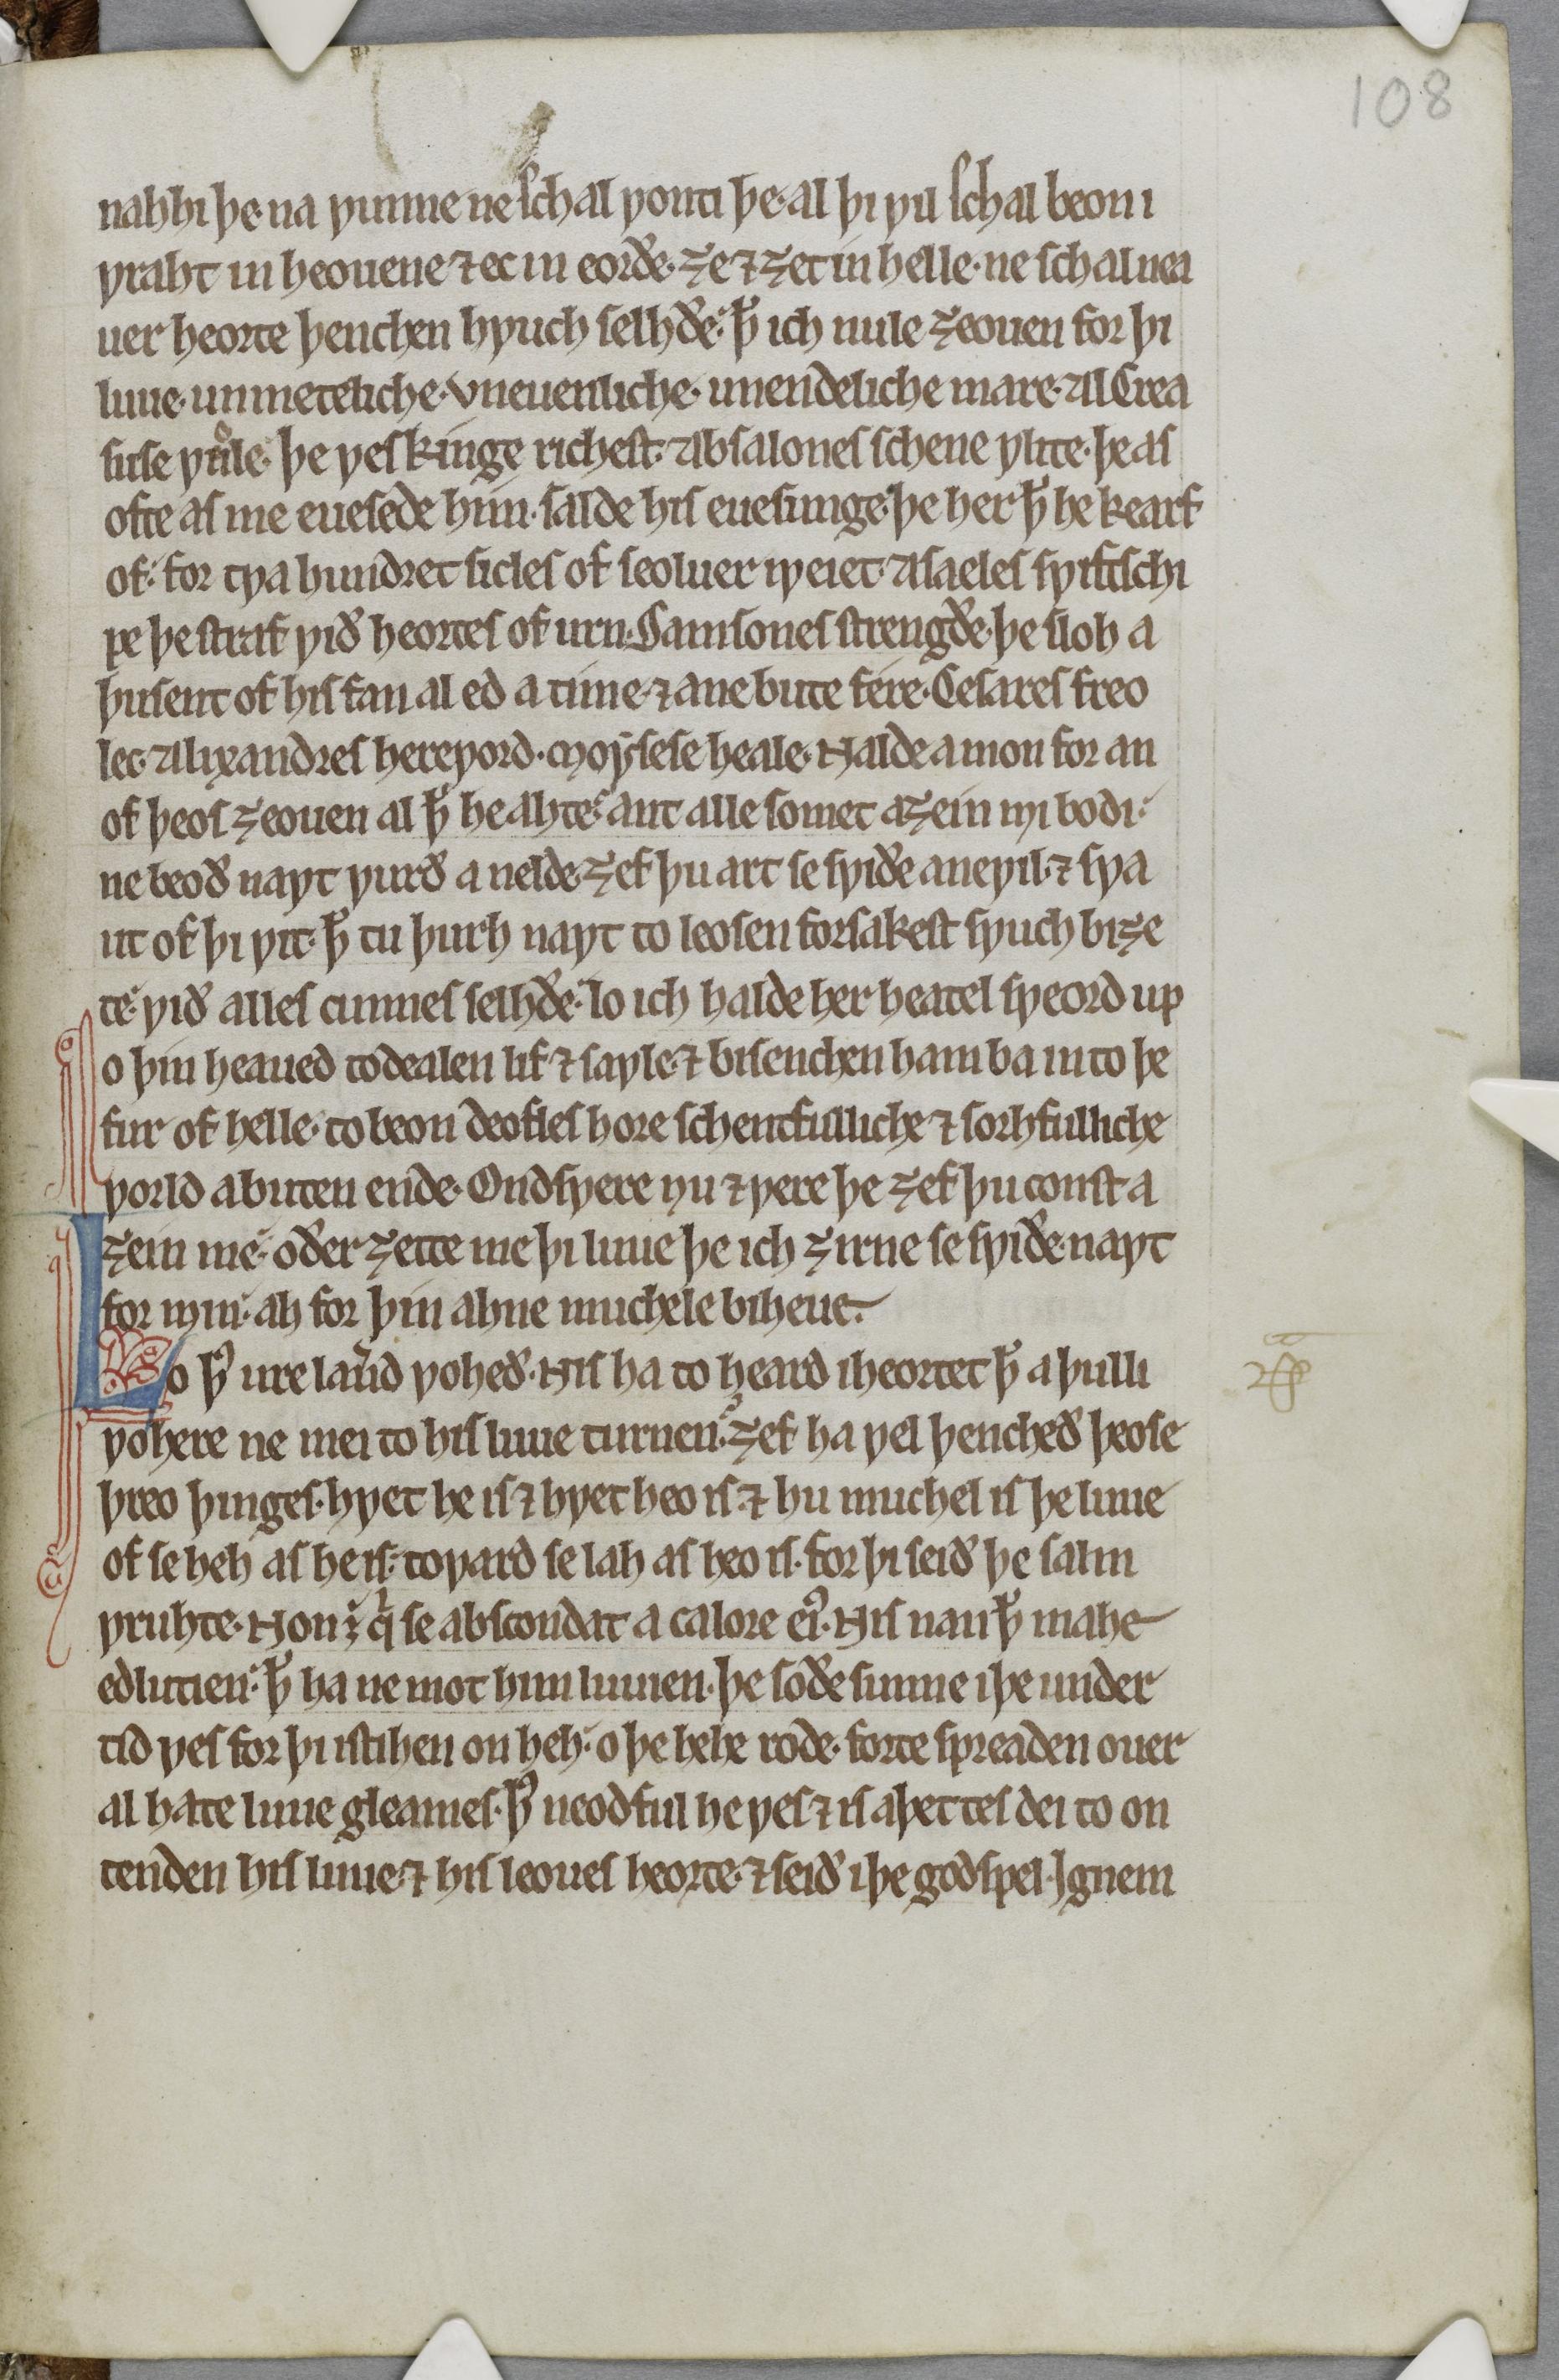 108
nahhi þe. na ƿunne ne schal ƿonti þe. al þi ƿil schal beon i
ƿraht in heouene ⁊ ec in eorðe. ȝe ⁊ ȝet in helle. ne schal nea
uer heorte þenchen hƿuch selhðe. ꝥ ich nule ȝeouen for þi
luue. unmeteliche. vneuenliche. unendeliche mare. Al Crea
suse ƿeole. þe ƿes kinge richest. Absalones schene ƿlite. þe as
ofte as me euesede him. salde his euesunge. þe her ꝥ he kearf
of. for tƿa hundret sicles of seoluer iƿeiet. Asaeles sƿiftschi
pe þe straf ƿið heortes of urn. Samsones strengðe. þe sloh a
þusent of his fan al ed a time. ⁊ ane bute fere. Cesares freo
lec. Alixandres hereƿord. Moẏsese heale. Nalde a mon for an
of þeos ȝeouen al ꝥ he ahte. ant alle somet aȝein mi bodi.
ne beoð naƿt ƿurð a nelde. ȝef þu art se sƿiðe aneƿil. ⁊ sƿa
ut of þi ƿit. ꝥ tu þurh naƿt to leosen forsakest sƿuch biȝe
te. ƿið alles cunnes selhðe. lo ich halde her heatel sƿeord up
o þin heaued todealen lif ⁊ saƿle. ⁊ bisenchen ham ba into þe
fur of helle. to beon deofles hore schentfulliche ⁊ sorhfulliche
ƿorld abuten ende. Ondsƿere nu ⁊ ƿere þe ȝef þu const a
ȝein me. oðer ȝette me þi luue þe ich ȝirne se sƿiðe. naƿt
for min. ah for þin ahne muchele biheue.
Lo ꝥ ure lauerd ƿoheð. Nis ha to heard iheortet ꝥ a þulli
ƿohere ne mei to his luue turnen. ȝef ha ƿel þencheð þeose
þreo þinges. hƿet he is ⁊ hƿet heo is ⁊ hu muchel is þe luue
of se heh as he is. toƿard se lah as heo is. for þi seið þe salm
ƿruhte. Non ē q̇ se abscondat a calore eiꝰ. Nis nan ꝥ mahe
edlutien. ꝥ ha ne mot him luuien. þe soðe sunne iþe under
tid ƿes for þi istihen on heh. o þe hehe rode. forte spreaden ouer
al hate luue gleames. ꝥ neodful he ƿes ⁊ is aþet tes dei to on
tenden his luue. ⁊ his leoues heorte. ⁊ seið iþe godspel. Ignem